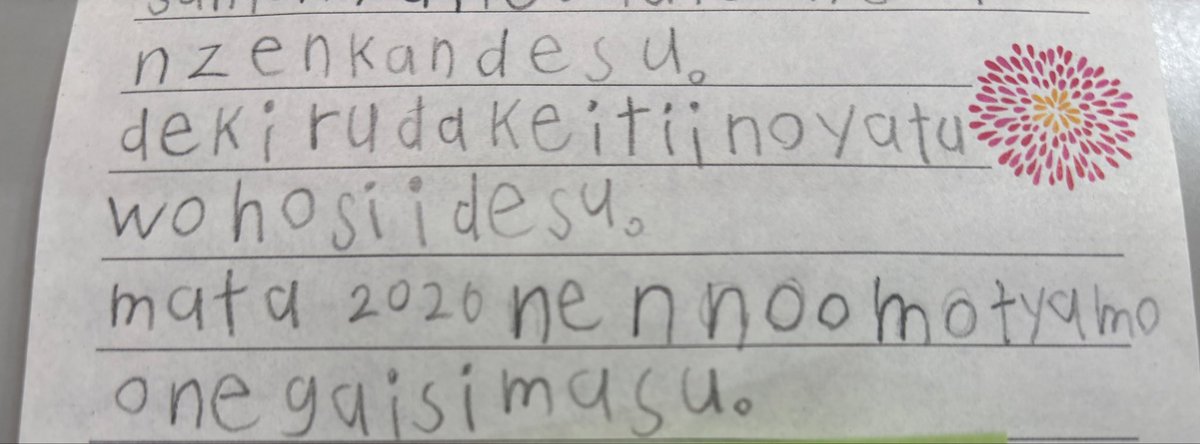 nzenkandesu。
dekirudakeitiinoyatu
wohosiidesu。
mata 2020nennoomotyamo
onegaisimasu。